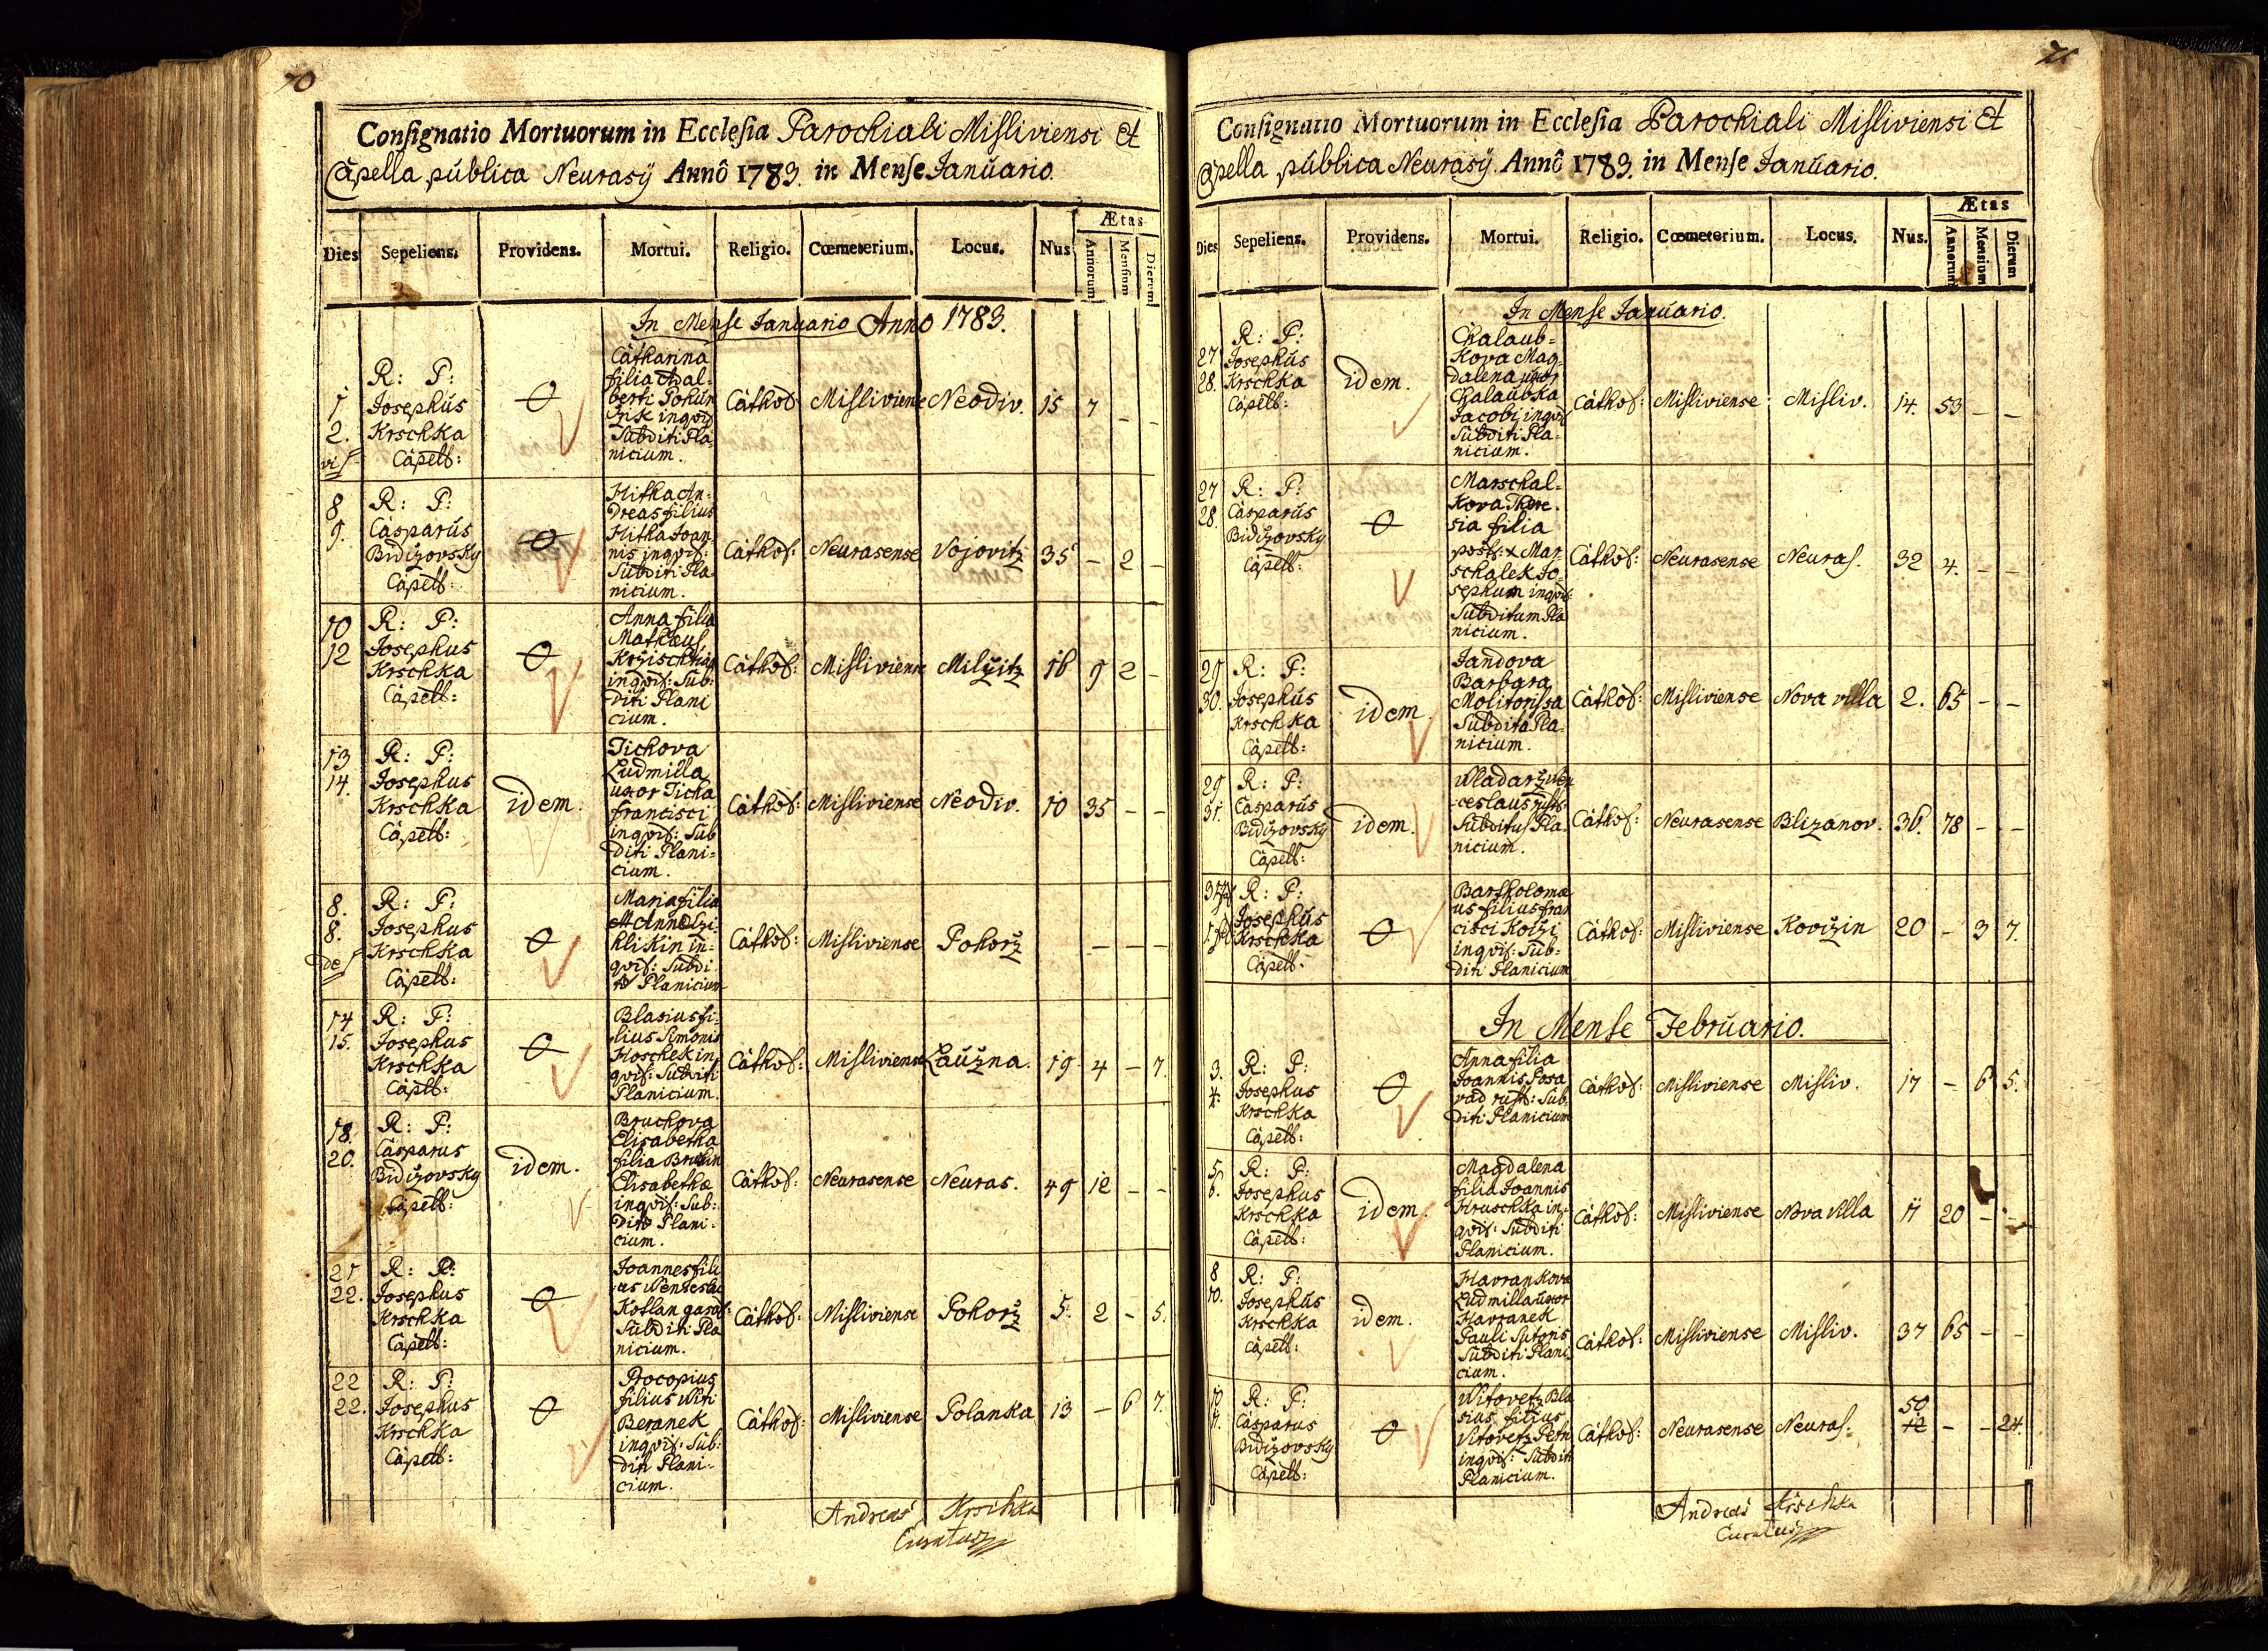 70
Consignatio Mortuorum in Ecclesia Parochiali Misliviensi et
Capella publica Neurasÿ Annô 1783. in Mense Januario.
Dies Sepeliens. Providens. Mortui. Religio. Cœmeterium. Locus. Nus Ætas Annorum Mensium Dierum
In Mense Januario Anno 1783.
1 2. R: P: Josephus Krschka Capell:
Catharina
filia Adal-
berti
Subditi Pla-
nicium.
Cathol: Misliviense Neodiv. 15 7 - -
8 9. R: P: Casparus Bidižovsky Capell:
Hitka An-
dreas filius
Hitka Joan-
nis inqvil:
Subditi Pla-
nicium.
Cathol: Neurasense Vojovitz 35 - 2 -
10 12 R: P: Josephus Krschka Capell:
Anna filia
Mathæus
inqvil: Sub-
diti Plani
cium.
Cathol: Misliviense Milžitz 16 9 2 -
13 14. R: P: Josephus Krschka Capell: idem.
Tichova
Ludmilla
uxor Ticha
Francisci
inqvil: Sub
diti Plani-
cium.
Cathol: Misliviense Neodiv. 10 35 - -
8. 8. R: P: Josephus Krschka Capell:
Maria filia
in-
qvil: Subdi
Planicium
Cathol: Misliviense Pohorž - - -
14 15. R: P: Josephus Krschka Capell:
Blasius fi-
lius Simonis
Hoschek in
qvil: Subditi
Planicium.
Cathol: Misliviense Laužna. 19 4 - 7.
18. 20. R: P: Casparus Bidižovsky Capell: idem.
Bruchova
Elisabetha
filia
Elisabethæ
inqvil: Sub-
Plani-
cium.
Cathol: Neurasense Neuras. 49 12 - -
21 22. R: P: Josephus Krschka Capell:
Joannes fili
us
Kotlan
Subditi Pla
nicium.
Cathol: Misliviense Pohorž 5. 2 - 5.
22 22. R: P: Josephus Krschka Capell:
Procopius
filius Witi
Beranek
inqvil: Sub-
diti Plani-
cium.
Cathol: Misliviense Polanka 13 - 6 7.
Andreas Krschka
Curatus
71
Consignatio Mortuorum in Ecclesia Parochiali Misliviensi et
Capella publica Neurasÿ. Annô 1783. in Mense Januario.
Dies Sepeliens. Providens. Mortui. Religio. Cœmeterium. Locus. Nus. Ætas Annorum Mensium Dierum
In Mense Januario.
27 28. R: P: Josephus Krschka Capell: idem.
Chalaub-
kova Mag-
dalena uxor
Chalaubka
Jacobi inqvil
Subditi Pla-
nicium.
Cathol: Misliviense Misliv. 14. 53 - -
27 28. R: P: Casparus Bidižovsky Capell:
Marschal-
kova There-
sia filia
Mar
schalek Jo-
sephum inqvil:
Subditum Pla
nicium.
Cathol: Neurasense Neuras. 32 4. - -
29 30. R: P: Josephus Krschka Capell: idem.
Jandova
Barbara
Molitorissa
Subdita Pla-
nicium.
Cathol: Misliviense Nova villa 2. 65 - -
29 31. R: P: Casparus Bidižovsky Capell: idem.
Wladarž Wen
ceslaus
Subditus Pla-
nicium.
Cathol: Neurasense Blizanov. 36. 78 - -
R: P: Josephus Krschka Capell:
Bartholomæ
us filius Fran
cisci
inqvil: Sub-
diti Planicium
Cathol: Misliviense Kovižin 20 - 3 7.
In Mense Februario.
3. 4. R: P: Josephus Krschka Capell:
Anna filia
Joannis Posa
vad rust: Sub-
diti Planicium
Cathol: Misliviense Misliv. 17 - 6 5.
5 6. R: P: Josephus Krschka Capell: idem.
Magdalena
filia Joannis
Hruschka in-
qvil: Subditi
Planicium.
Cathol: Misliviense Nova Villa 11 20 - -
8 10. R: P: Josephus Krschka Capell: idem.
Havrankova
Ludmilla uxor
Havranek
Pauli Sutoris
Subditi Plani-
cium.
Cathol: Misliviense Misliv. 37 65 - -
10 11. R: P: Casparus Bidižovsky Capell:
Witovetz Bla
sius filius
Vitovetz Petri
inqvil: Subditi
Planicium.
Cathol: Neurasense Neuras: 50 12 - - 24.
Andreas Krschka
Curatus